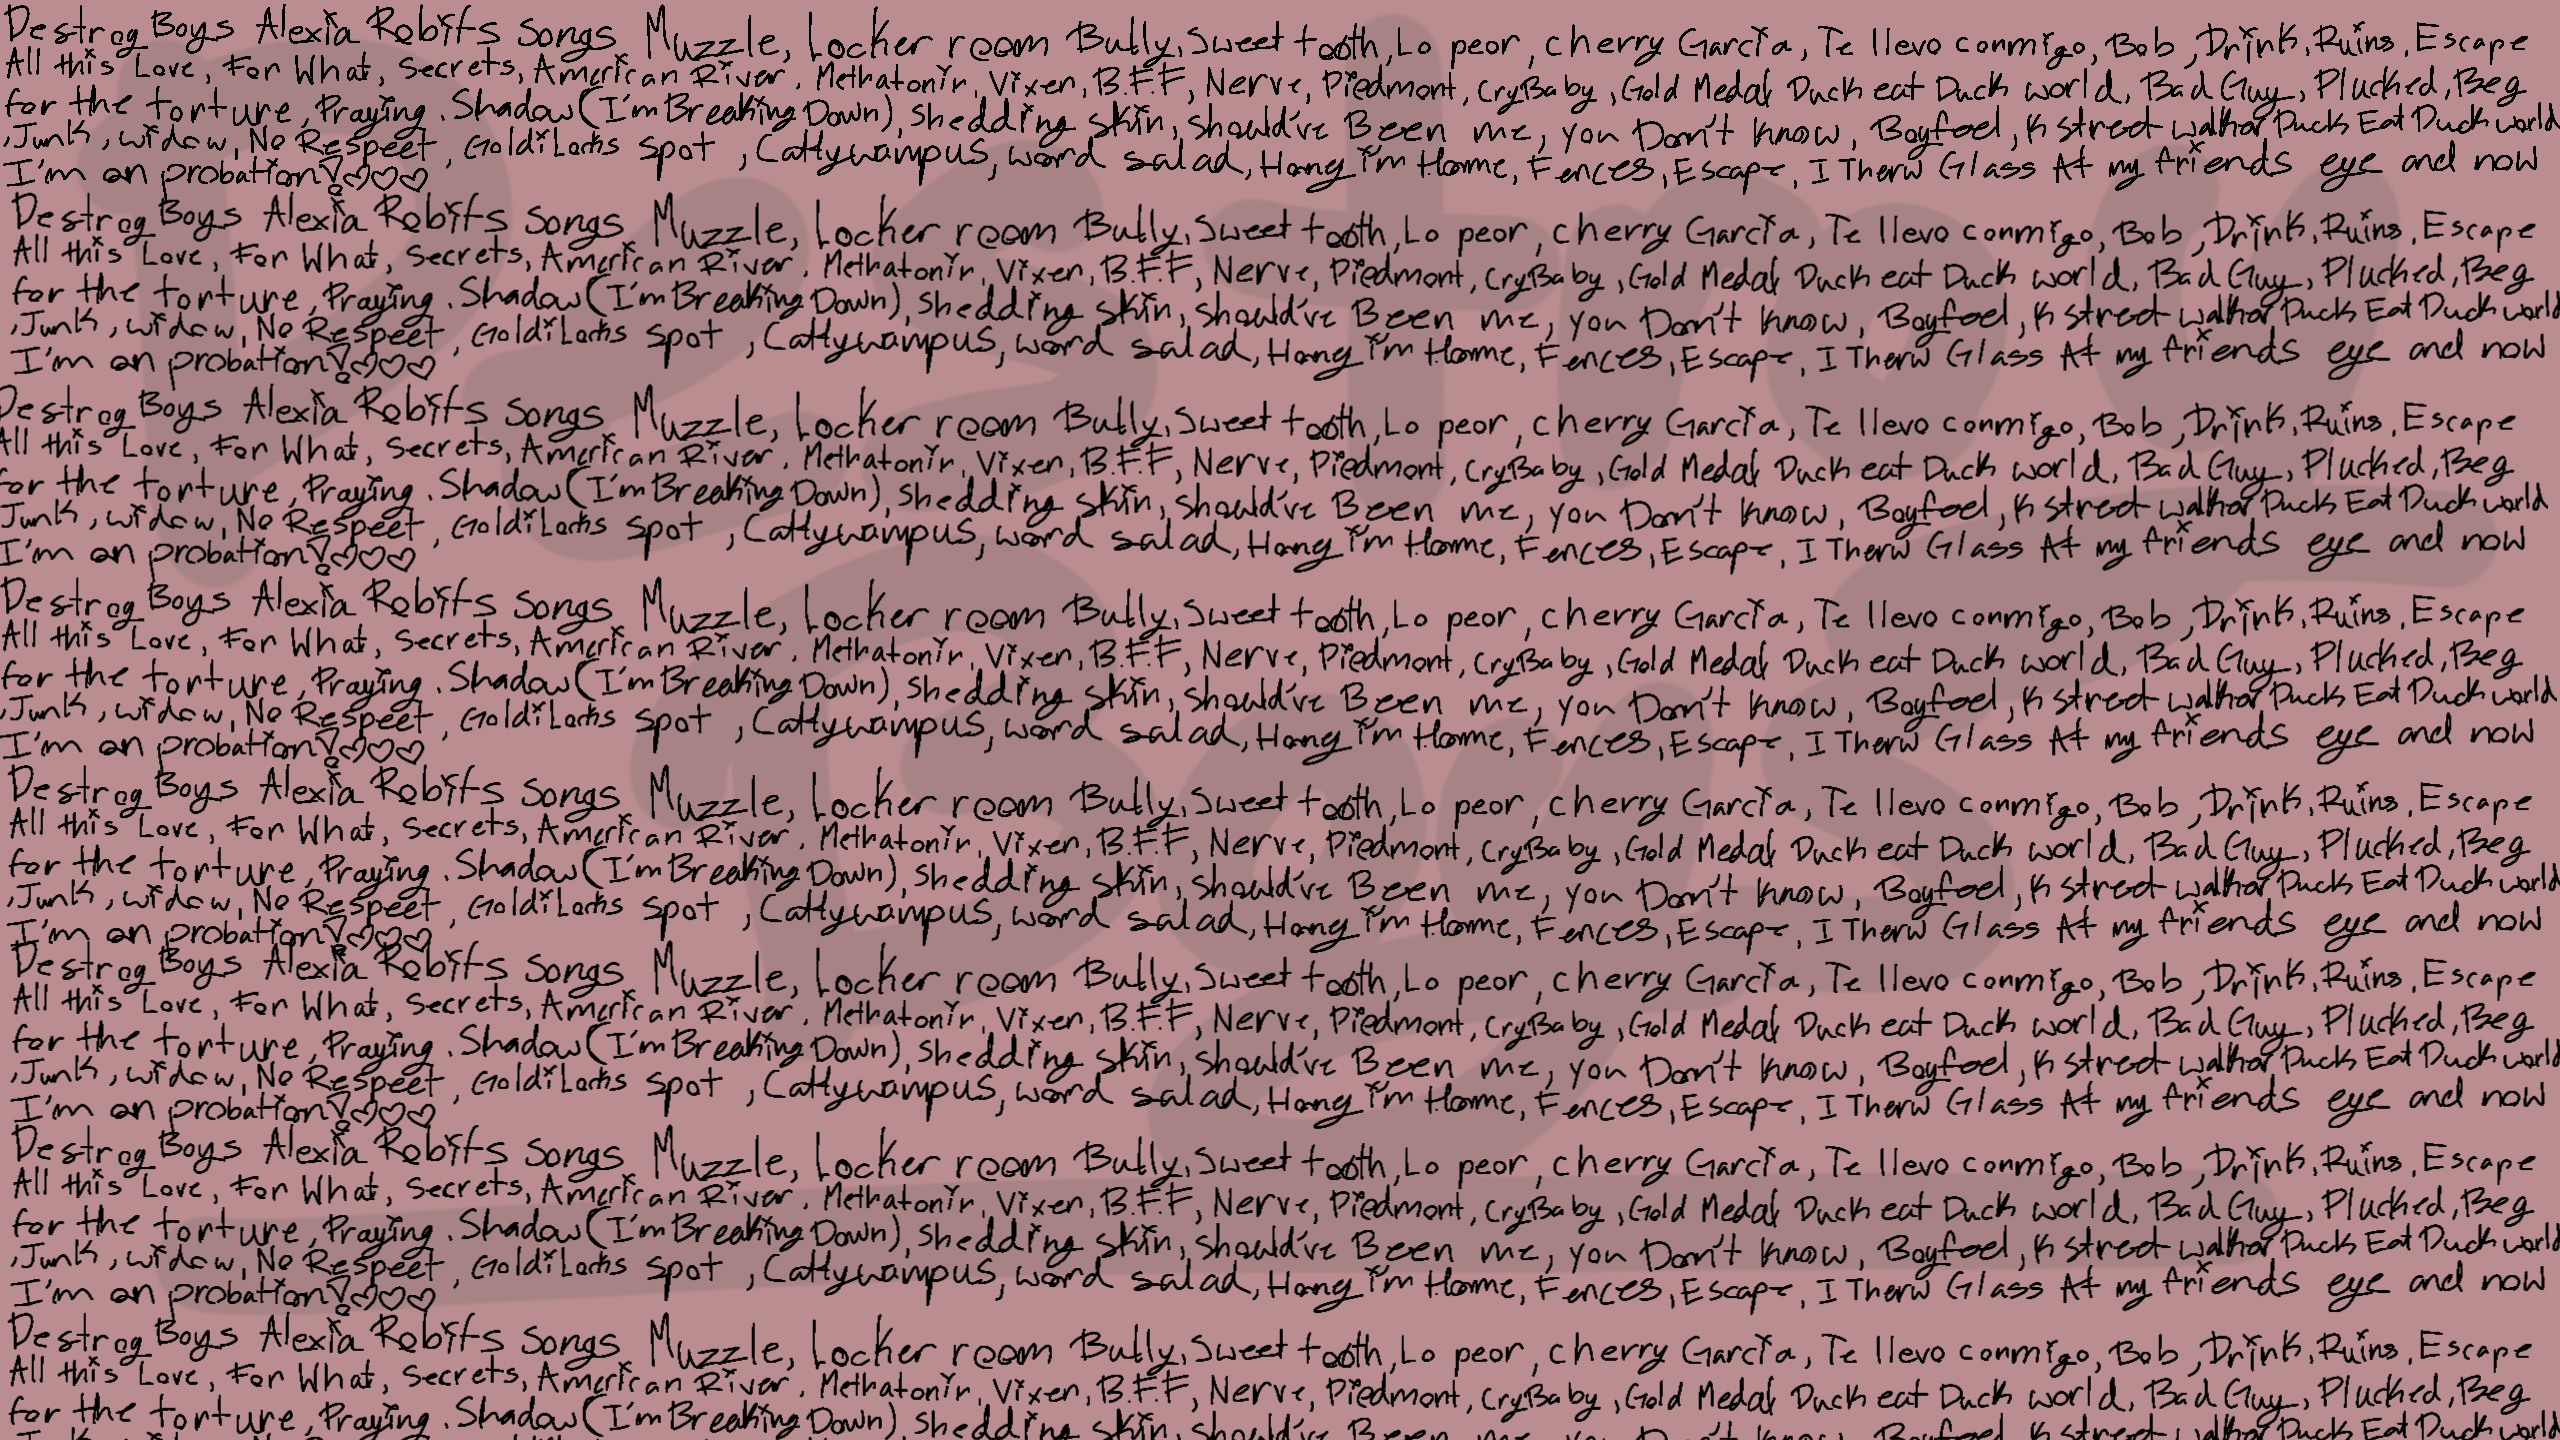 Destroy Boys Alexia Robifs Songs Muzzle, Locker room Bully, Sweet tooth, Lo peor, cherry Garcia, Te llevo conmigo, Bob, Drink, Ruins, Escape
All this Love, For What, Secrets, American River. Methatonin, Vixen, B.F.F, Nerve, Piedmont, CryBaby, Gold Medal Duck eat Duck world, Bad Guy, Plucked, Beg
for the torture, Praying. Shadow (I'm Breaking Down), Shedding skin, should've Been me, you Don't know, Boyfeel, K street walker Duck Eat Duck world
, Junk, widow, No Respeet, GoldiLocks spot, Cattywampus, word salad, Hang I'm Home, Fences, Escape, I Therw Glass At my friends eye and now
I'm on probation!♡♡♡
Destroy Boys Alexia Robifs Songs Muzzle, Locker room Bully, Sweet tooth, Lo peor, cherry Garcia, Te llevo conmigo, Bob, Drink, Ruins, Escape
All this Love, For What, Secrets, American River. Methatonin, Vixen, B.F.F, Nerve, Piedmont, CryBaby, Gold Medal Duck eat Duck world, Bad Guy, Plucked, Beg
for the torture, Praying. Shadow (I'm Breaking Down), Shedding skin, should've Been me, you Don't know, Boyfeel, K street walker Duck Eat Duck world
, Junk, widow, No Respeet, GoldiLocks spot, Cattywampus, word salad, Hang I'm Home, Fences, Escape, I Therw Glass At my friends eye and now
I'm on probation!♡♡♡
Destroy Boys Alexia Robifs Songs Muzzle, Locker room Bully, Sweet tooth, Lo peor, cherry Garcia, Te llevo conmigo, Bob, Drink, Ruins, Escape
All this Love, For What, Secrets, American River. Methatonin, Vixen, B.F.F, Nerve, Piedmont, CryBaby, Gold Medal Duck eat Duck world, Bad Guy, Plucked, Beg
for the torture, Praying. Shadow (I'm Breaking Down), Shedding skin, should've Been me, you Don't know, Boyfeel, K street walker Duck Eat Duck world
Junk, widow, No Respeet, GoldiLocks spot, Cattywampus, word salad, Hang I'm Home, Fences, Escape, I Therw Glass At my friends eye and now
I'm on probation!♡♡♡
Destroy Boys Alexia Robifs Songs Muzzle, Locker room Bully, Sweet tooth, Lo peor, cherry Garcia, Te llevo conmigo, Bob, Drink, Ruins, Escape
All this Love, For What, Secrets, American River. Methatonin, Vixen, B.F.F, Nerve, Piedmont, CryBaby, Gold Medal Duck eat Duck world, Bad Guy, Plucked, Beg
for the torture, Praying. Shadow (I'm Breaking Down), Shedding skin, should've Been me, you Don't know, Boyfeel, K street walker Duck Eat Duck world
, Junk, widow, No Respeet, GoldiLocks spot, Cattywampus, word salad, Hang I'm Home, Fences, Escape, I Therw Glass At my friends eye and now
I'm on probation!♡♡♡
Destroy Boys Alexia Robifs Songs Muzzle, Locker room Bully, Sweet tooth, Lo peor, cherry Garcia, Te llevo conmigo, Bob, Drink, Ruins, Escape
All this Love, For What, Secrets, American River. Methatonin, Vixen, B.F.F, Nerve, Piedmont, CryBaby, Gold Medal Duck eat Duck world, Bad Guy, Plucked, Beg
for the torture, Praying. Shadow (I'm Breaking Down), Shedding skin, should've Been me, you Don't know, Boyfeel, K street walker Duck Eat Duck world
, Junk, widow, No Respeet, GoldiLocks spot, Cattywampus, word salad, Hang I'm Home, Fences, Escape, I Therw Glass At my friends eye and now
I'm on probation!♡♡♡
Destroy Boys Alexia Robifs Songs Muzzle, Locker room Bully, Sweet tooth, Lo peor, cherry Garcia, Te llevo conmigo, Bob, Drink, Ruins, Escape
All this Love, For What, Secrets, American River. Methatonin, Vixen, B.F.F, Nerve, Piedmont, CryBaby, Gold Medal Duck eat Duck world, Bad Guy, Plucked, Beg
for the torture, Praying. Shadow (I'm Breaking Down), Shedding skin, should've Been me, you Don't know, Boyfeel, K street walker Duck Eat Duck world
, Junk, widow, No Respeet, GoldiLocks spot, Cattywampus, word salad, Hang I'm Home, Fences, Escape, I Therw Glass At my friends eye and now
I'm on probation!♡♡♡
Destroy Boys Alexia Robifs Songs Muzzle, Locker room Bully, Sweet tooth, Lo peor, cherry Garcia, Te llevo conmigo, Bob, Drink, Ruins, Escape
All this Love, For What, Secrets, American River. Methatonin, Vixen, B.F.F, Nerve, Piedmont, CryBaby, Gold Medal Duck eat Duck world, Bad Guy, Plucked, Beg
for the torture, Praying. Shadow (I'm Breaking Down), Shedding skin, should've Been me, you Don't know, Boyfeel, K street walker Duck Eat Duck world
, Junk, widow, No Respeet, GoldiLocks spot, Cattywampus, word salad, Hang I'm Home, Fences, Escape, I Therw Glass At my friends eye and now
I'm on probation!♡♡♡
Destroy Boys Alexia Robifs Songs Muzzle, Locker room Bully, Sweet tooth, Lo peor, cherry Garcia, Te llevo conmigo, Bob, Drink, Ruins, Escape
All this Love, For What, Secrets, American River. Methatonin, Vixen, B.F.F, Nerve, Piedmont, CryBaby, Gold Medal Duck eat Duck world, Bad Guy, Plucked, Beg
for the torture, Praying. Shadow (I'm Breaking Down), Shedding skin, should've Been me, you Don't know, Boyfeel, K street walker Duck Eat Duck world